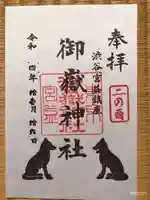 奉拝
二の酉
渋谷宮益鎮座
御嶽神社
令和四年拾壱月拾六日